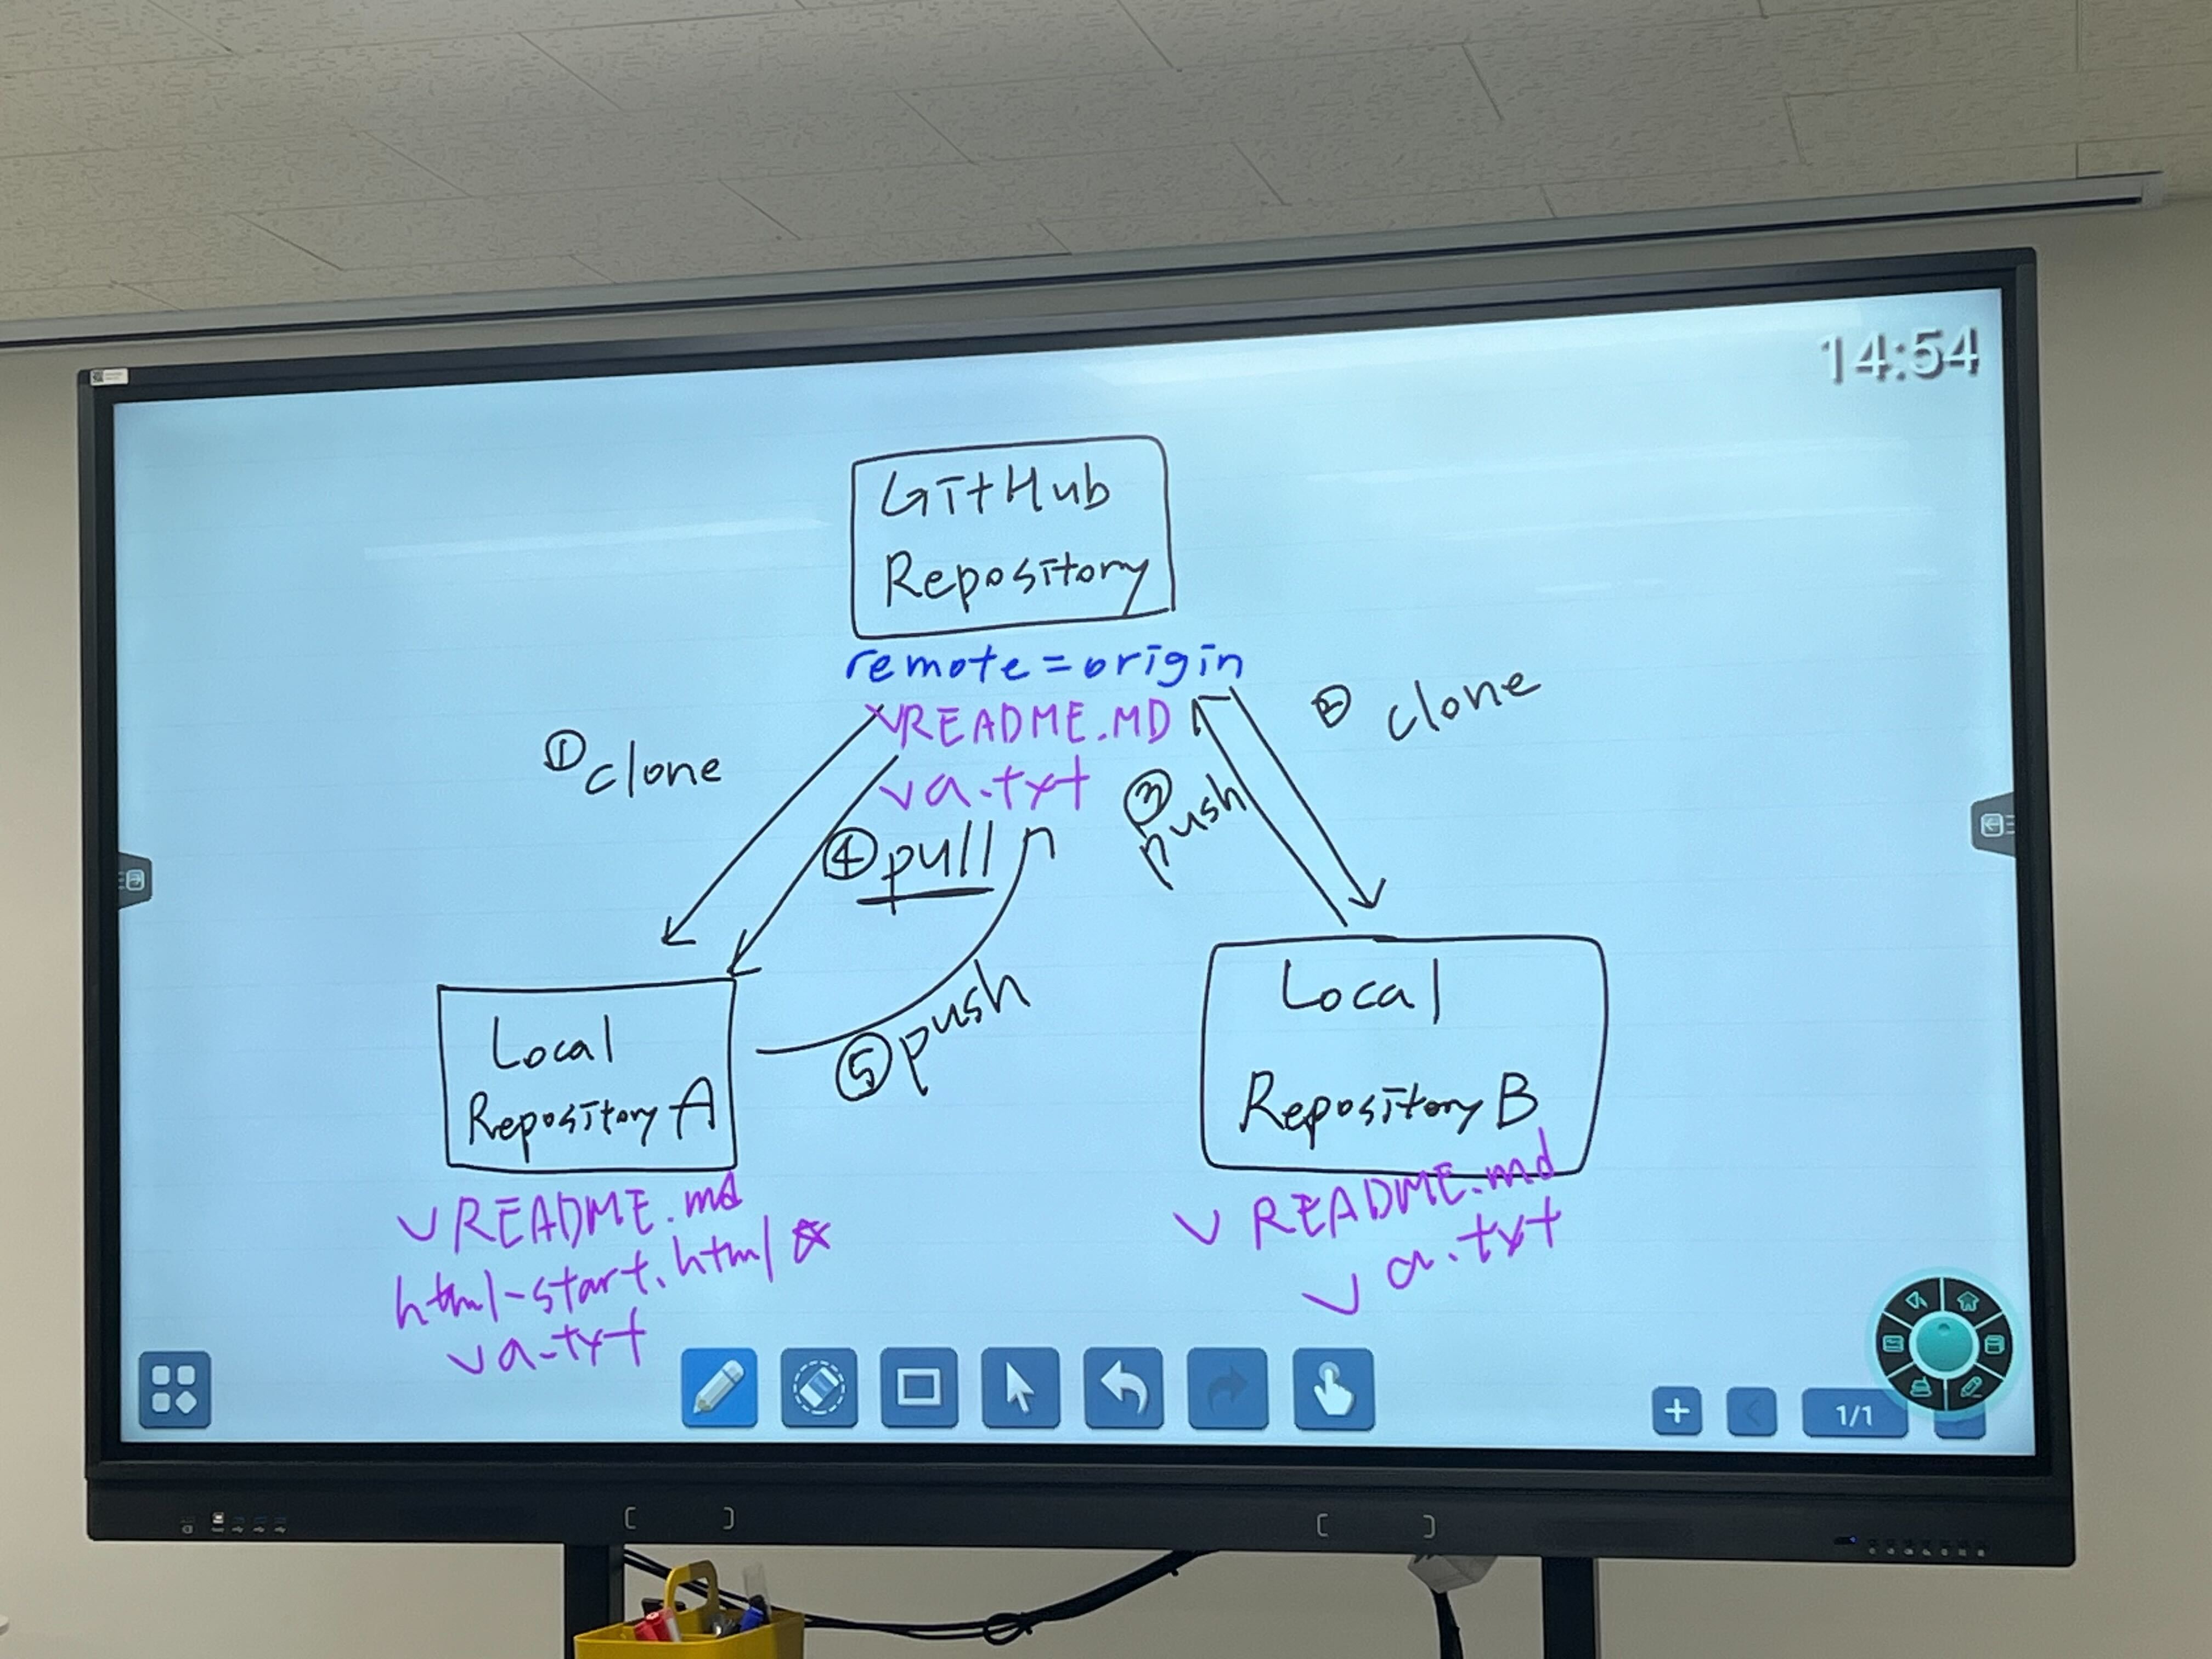 14:54
GitHub
Repository
remote = origin
README.MD
a.txt
① clone
② clone
③ push
④ pull
⑤ push
Local
Repository A
README.md
html-start.html
a.txt
Local
Repository B
README.md
a.txt
1/1